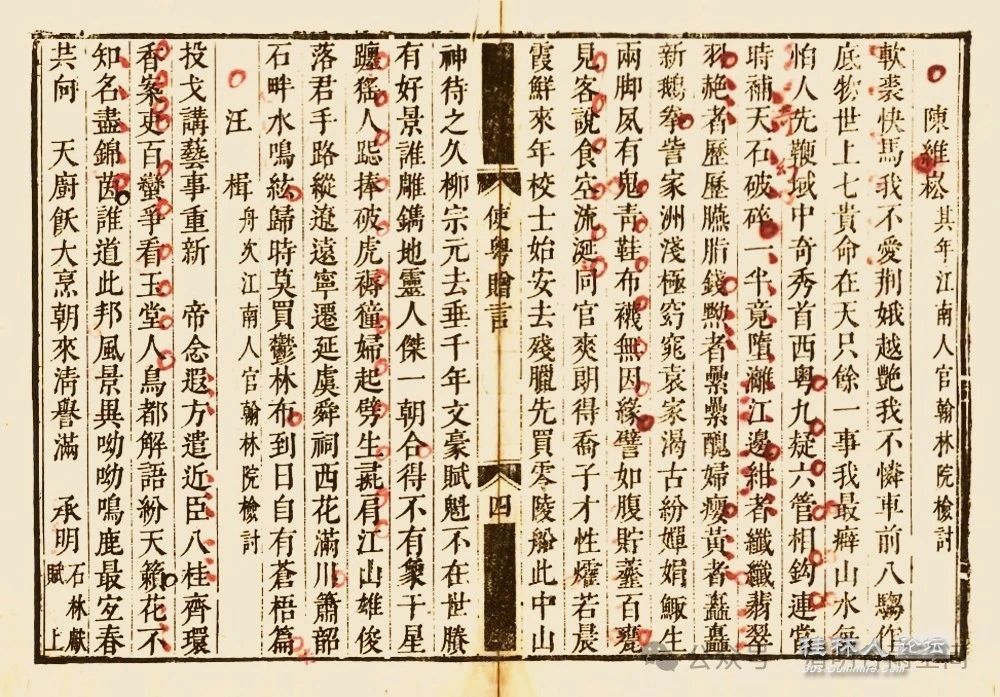 陳維崧 其年江南人官翰林院檢討
軟裘快馬我不愛荆娥越艷我不憐車前八騶作
底物世上七貴命在天只餘一事我最癖山水每
怕人先鞭域中奇秀首西粤九疑六管相鈎連當
時補天石破碎一半竟墮灕江邊紺者纖纖翡翠
羽赩者歷歷臙脂錢黝者纍纍醜婦癭黃者矗矗
新鵝拳訾家洲淺極窈窕袁家渴古紛嬋娟鯫生
兩脚夙有鬼青鞋布襪無因緣譬如腹貯虀百甕
見客說食空流涎同官爽朗得喬子才性㸌若晨
霞鮮來年校士始安去殘臘先買零陵船此中山
使粤贈言
四
神待之久柳宗元去垂千年文豪賦魁不在世賸
有好景誰雕鐫地靈人傑一朝合得不有象干星
躔猺人跽捧破虎褥獞婦起劈生彘肩江山雄俊
落君手路縱遼遠寧遷延虞舜祠西花滿川簫韶
石畔水鳴絃歸時莫買鬱林布到日自有蒼梧篇
汪楫 舟次江南人官翰林院檢討
投戈講藝事重新 帝念遐方遣近臣八桂齊環
香案吏百蠻爭看玉堂人鳥都解語紛天籟花不
知名盡錦茵誰道此邦風景異呦呦鳴鹿最宐春
共向 天廚飫大烹朝來淸譽滿 承明石林獻賦上
桂林人论坛
公众号